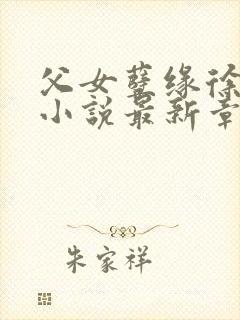 父女孽缘徐
小説最新章
朱家祥